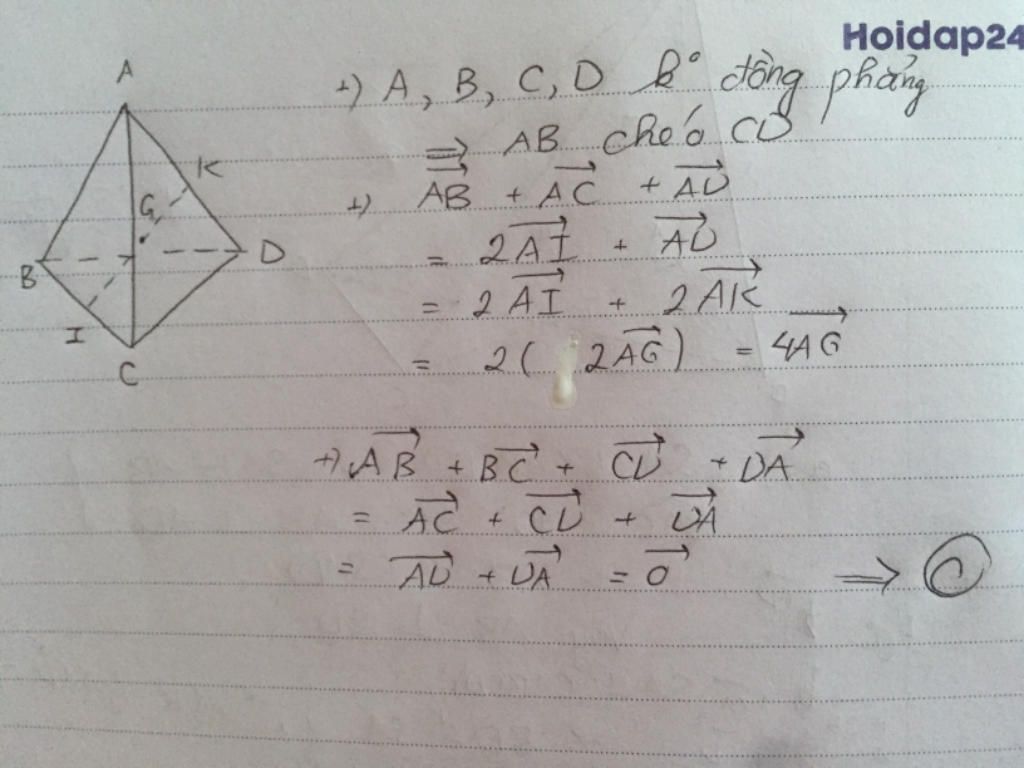 Hoidap24
+) A, B, C, D k° đồng phẳng
⇒ AB chéo CD
+) $\overrightarrow{AB} + \overrightarrow{AC} + \overrightarrow{AD}$
= $2\overrightarrow{AI} + \overrightarrow{AD}$
= $2\overrightarrow{AI} + 2\overrightarrow{AK}$
= $2(2\overrightarrow{AG}) = 4\overrightarrow{AG}$
+) $\overrightarrow{AB} + \overrightarrow{BC} + \overrightarrow{CD} + \overrightarrow{DA}$
= $\overrightarrow{AC} + \overrightarrow{CD} + \overrightarrow{DA}$
= $\overrightarrow{AD} + \overrightarrow{DA} = \overrightarrow{0}$ ⇒
A
K
G
B
D
I
C